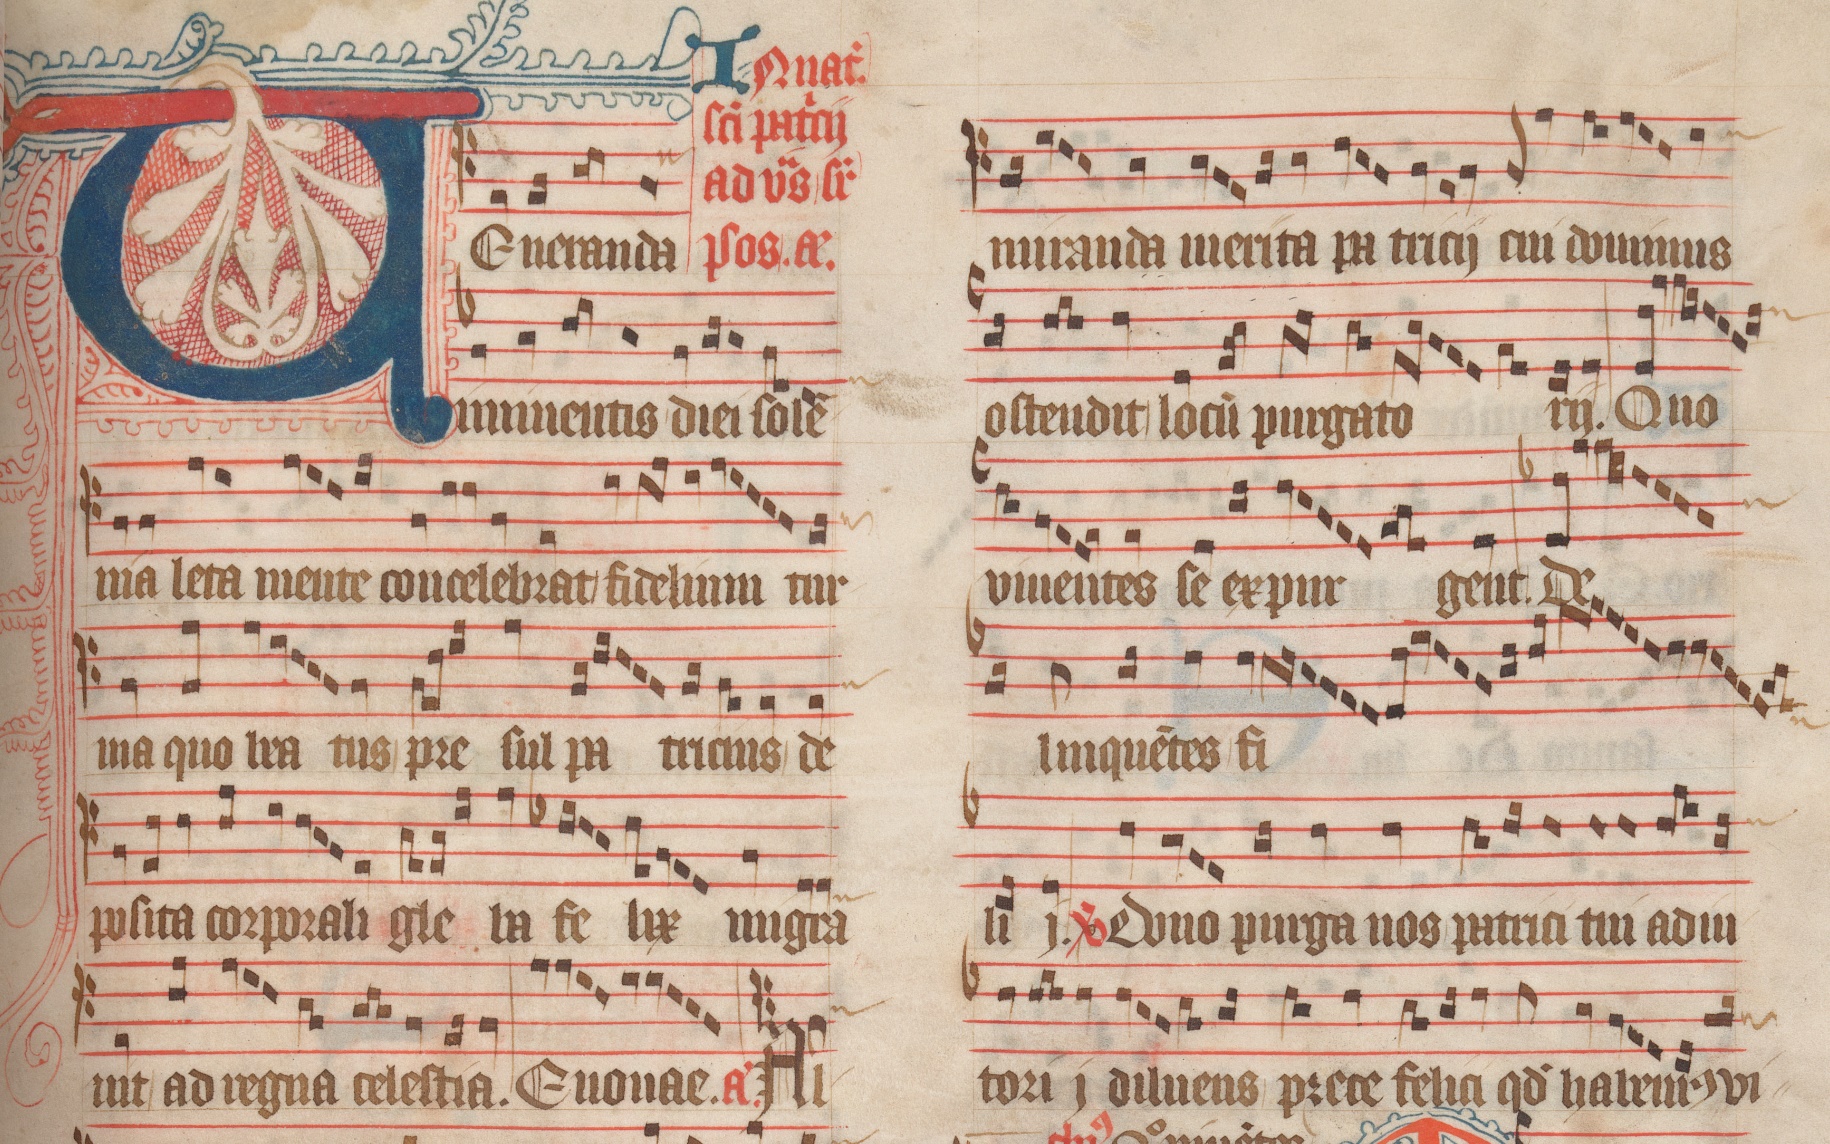 In nat̄.
sc̄i pat̄cij
ad v̄s̄ sr̄
Veneranda psos. a͞.
imminentis diei solē
nia leta mente concelebrat fidelium tur
ma quo bea tus pre sul pa tricius de
posita corporali gle ba fe lix migra
uit ad regna celestia. Euouae. a͞. Al
miranda merita pa tricij cui dominus
ostendit locū purgato rij. Quo
viuentes se ex pur gent. De
linquētes fi
li j. ℣ Quo purga nos patrici tui adiu
tori j diluens prece felici qd̄ habem9 vi